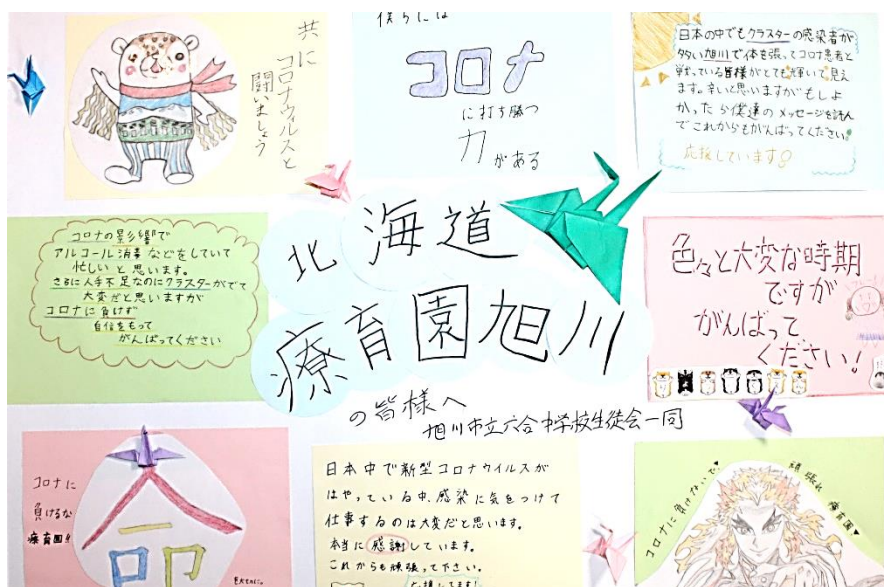 共に
コロナウィルスと
闘いましょう
僕らには
コロナ
に打ち勝つ
力がある
日本の中でもクラスターの感染者が
多い旭川で体を張ってコロナ患者と
戦っている皆様がとても輝いて見え
ます。辛いと思いますがもしよ
かったら僕達のメッセージを読ん
でこれからもがんばってください。
応援しています!
コロナの影響で
アルコール消毒などをしていて
忙しいと思います。
さらに人手不足なのにクラスターがでて
大変だと思いますが
コロナに負けず
自信をもって
がんばってください
北海道
療育園旭川
の皆様へ
旭川市立六合中学校生徒会一同
色々と大変な時期
ですが
がんばって
ください!
コロナに
負けるな
療育園!!
命
日本中で新型コロナウイルスが
はやっている中、感染に気をつけて
仕事するのは大変だと思います。
本当に感謝しています。
これからも頑張って下さい。
応援してます!
コロナに負けないで♥
頑張れ 療育園♥